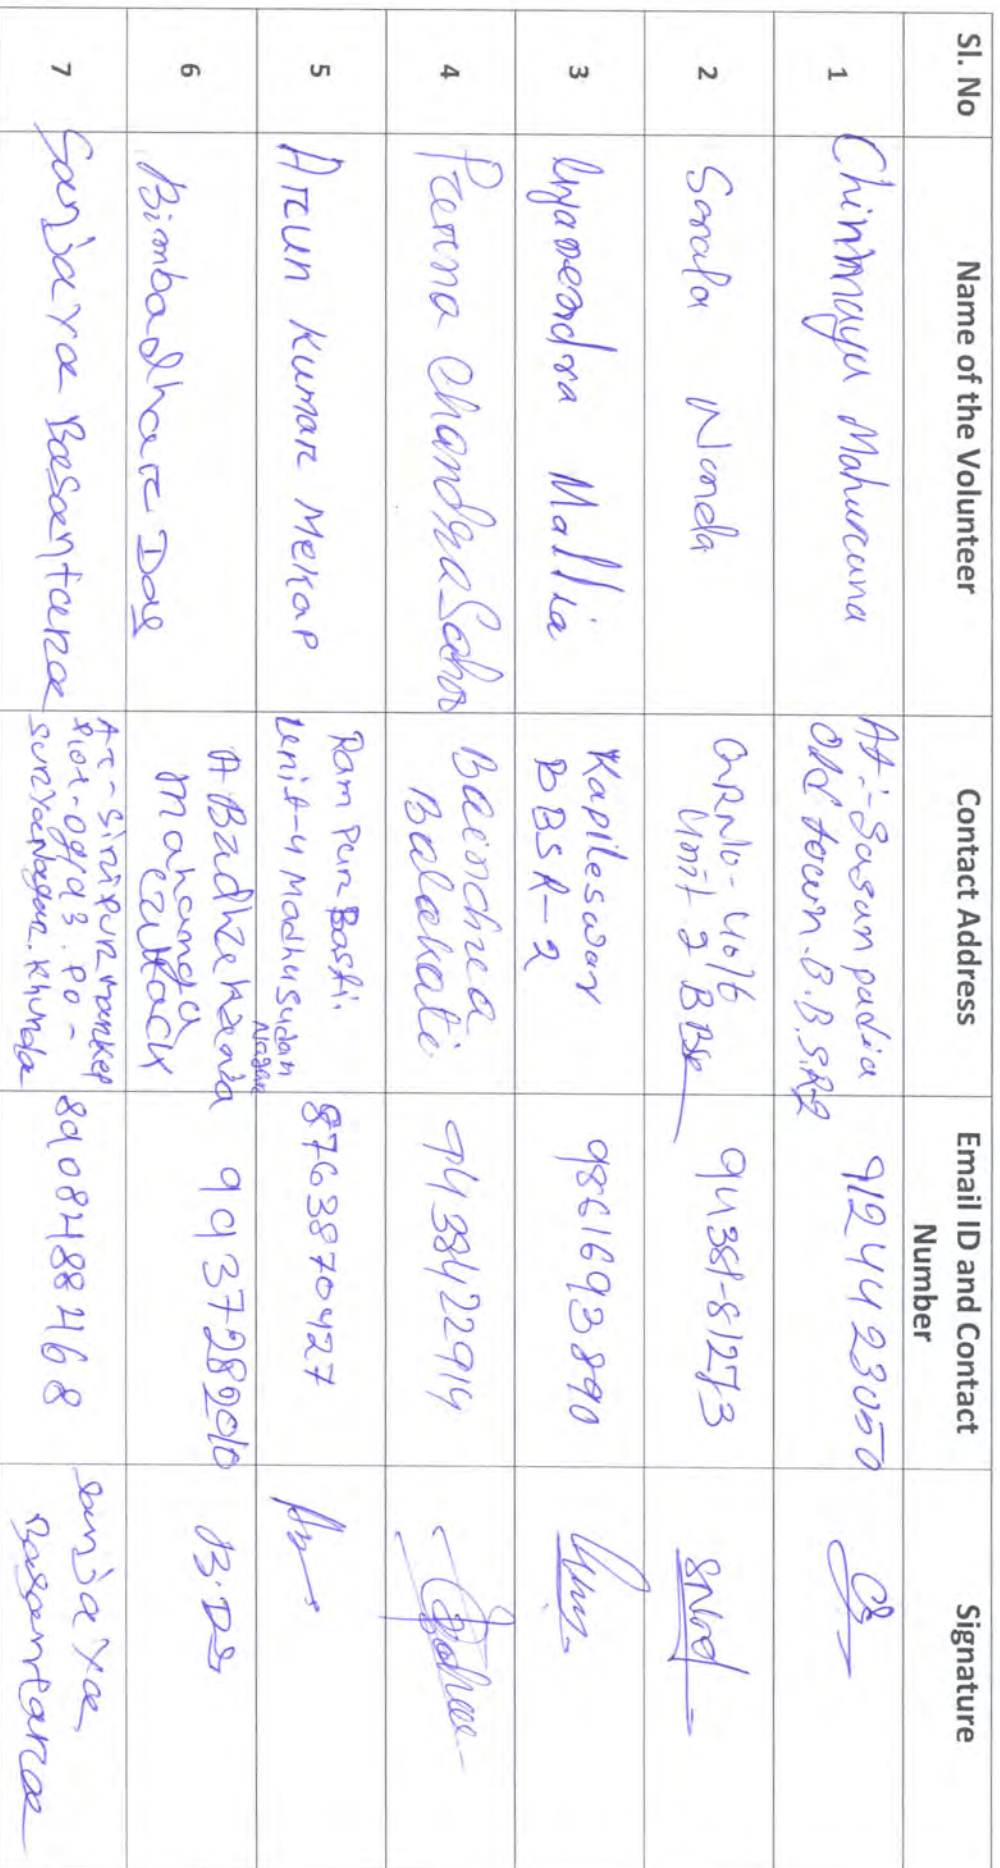 Sl. No Name of the Volunteer Contact Address Email ID and Contact Number Signature
1 Chinmaya Maharana At:- Sasan padia
Old town. B.B.S.R-2 9124423050
2 Sarala Nanda Qr No- 40/6
Unit 2 BBSR 94381-81273
3 Mallia Kapileswar
BBSR-2 9861693890
4 Purna Chandra Sahoo Bainchua
Balakati 9438422914
5 Arun Kumar Mekap Ram Pur Basti.
Unit-4 Madhusudan
Nagar 8763870427
6 Bimbadhar Das
Mahanga
Cuttack B.Ds
7 Sanjaya Basantara At- Siripur
Plot- PO-
Suryanagar. Khurda 8908488468 Sanjaya
Basantara